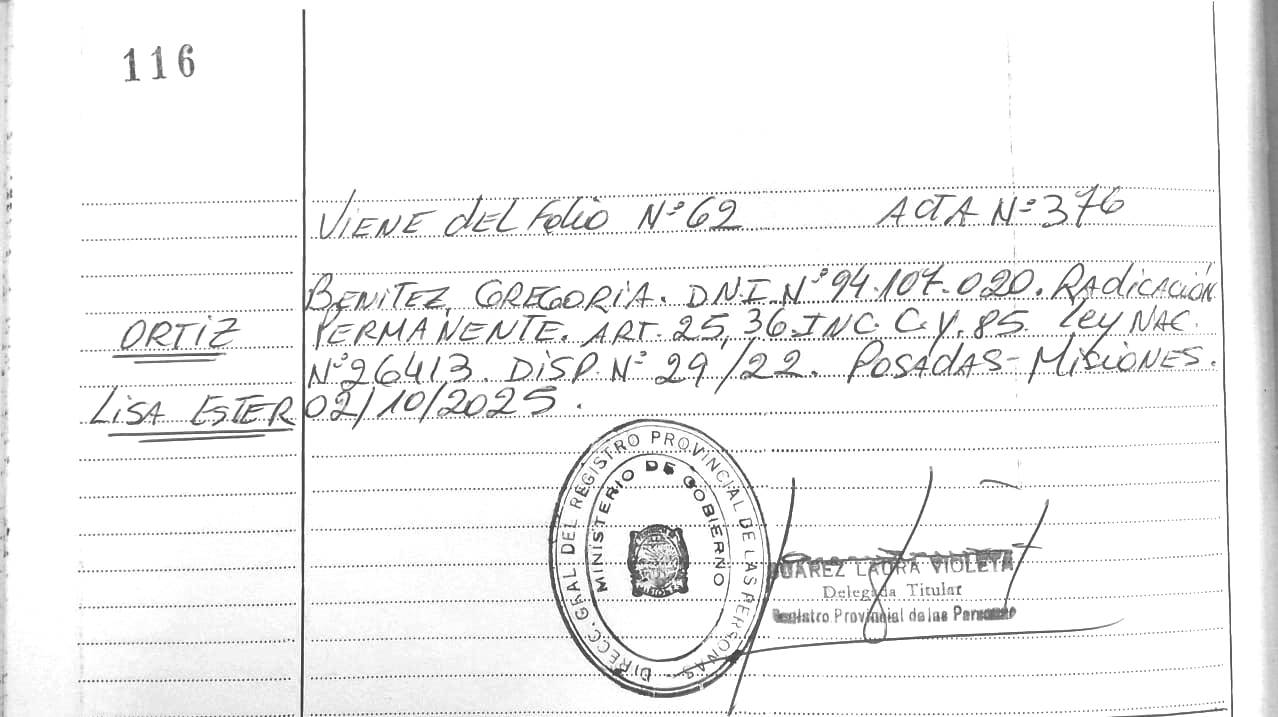 116
VIENE dEL Folio Nº 62 ACTA Nº 376
BENITEZ, GREGORIA. D.N.I. Nº 94.107.020. RAdicACIÓN
ORTIZ PERMANENTE. ART. 25, 36 INC. C. Y. 85. Ley NAC.
Nº 26413. DISP. Nº 29/22. POSADAS - MISIONES.
LISA ESTER 02/10/2025.
DIREC. GRAL DEL REGISTRO PROVINCIAL DE LAS PERSONAS
MINISTERIO DE GOBIERNO
LAURA VIOLETA
Delegada Titular
Registro Provincial de las Personas